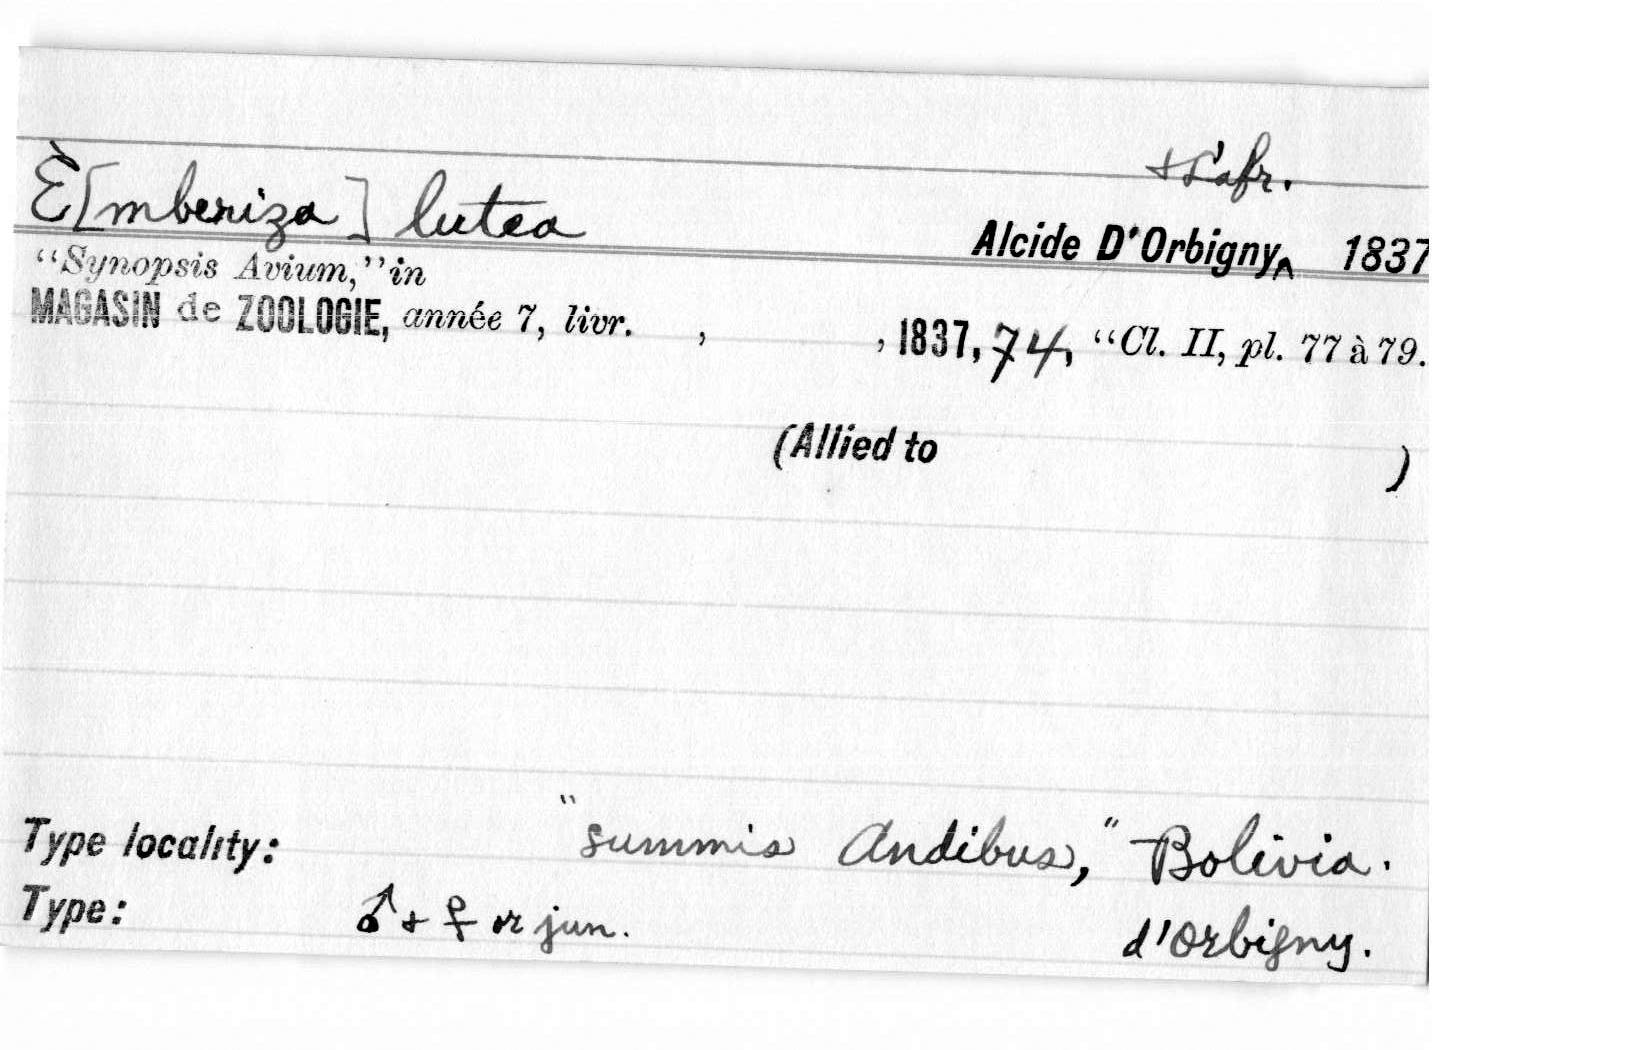 + Lafr.
E[mberiza] lutea
Alcide D'Orbigny‸ 1837
“Synopsis Avium,” in
MAGASIN de ZOOLOGIE, année 7, livr. , , 1837, 74, “Cl. II, pl. 77 à 79.
(Allied to )
Type locality: "summis Andibus," Bolivia.
Type: ♂ + ♀ or jun. d'Orbigny.